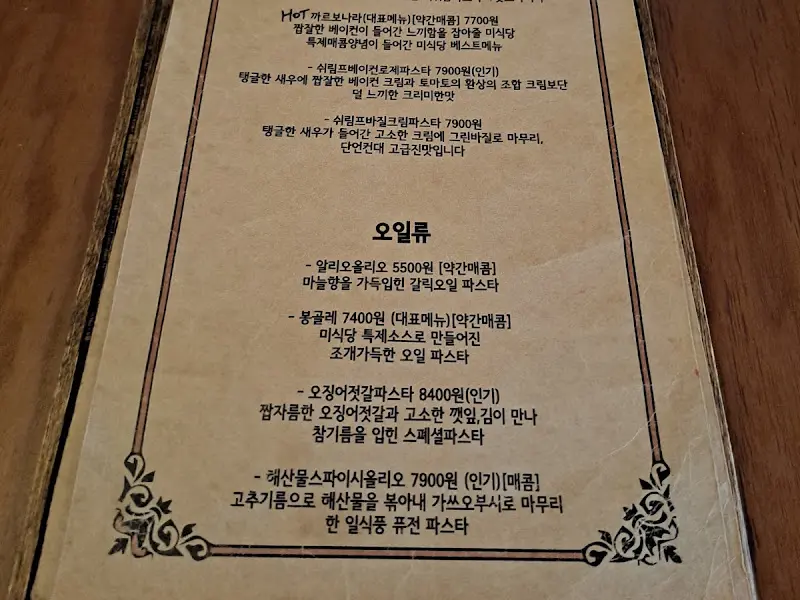 HOT 까르보나라(대표메뉴)[약간매콤] 7700원
짭잘한 베이컨이 들어간 느끼함을 잡아줄 미식당
특제매콤양념이 들어간 미식당 베스트메뉴
- 쉬림프베이컨로제파스타 7900원(인기)
탱글한 새우에 짭잘한 베이컨 크림과 토마토의 환상의 조합 크림보단
덜 느끼한 크리미한맛
- 쉬림프바질크림파스타 7900원
탱글한 새우가 들어간 고소한 크림에 그린바질로 마무리,
단언컨대 고급진맛입니다
오일류
- 알리오올리오 5500원 [약간매콤]
마늘향을 가득입힌 갈릭오일 파스타
- 봉골레 7400원 (대표메뉴)[약간매콤]
미식당 특제소스로 만들어진
조개가득한 오일 파스타
- 오징어젓갈파스타 8400원(인기)
짭자름한 오징어젓갈과 고소한 깻잎,김이 만나
참기름을 입힌 스폐셜파스타
- 해산물스파이시올리오 7900원 (인기)[매콤]
고추기름으로 해산물을 볶아내 가쓰오부시로 마무리
한 일식풍 퓨전 파스타